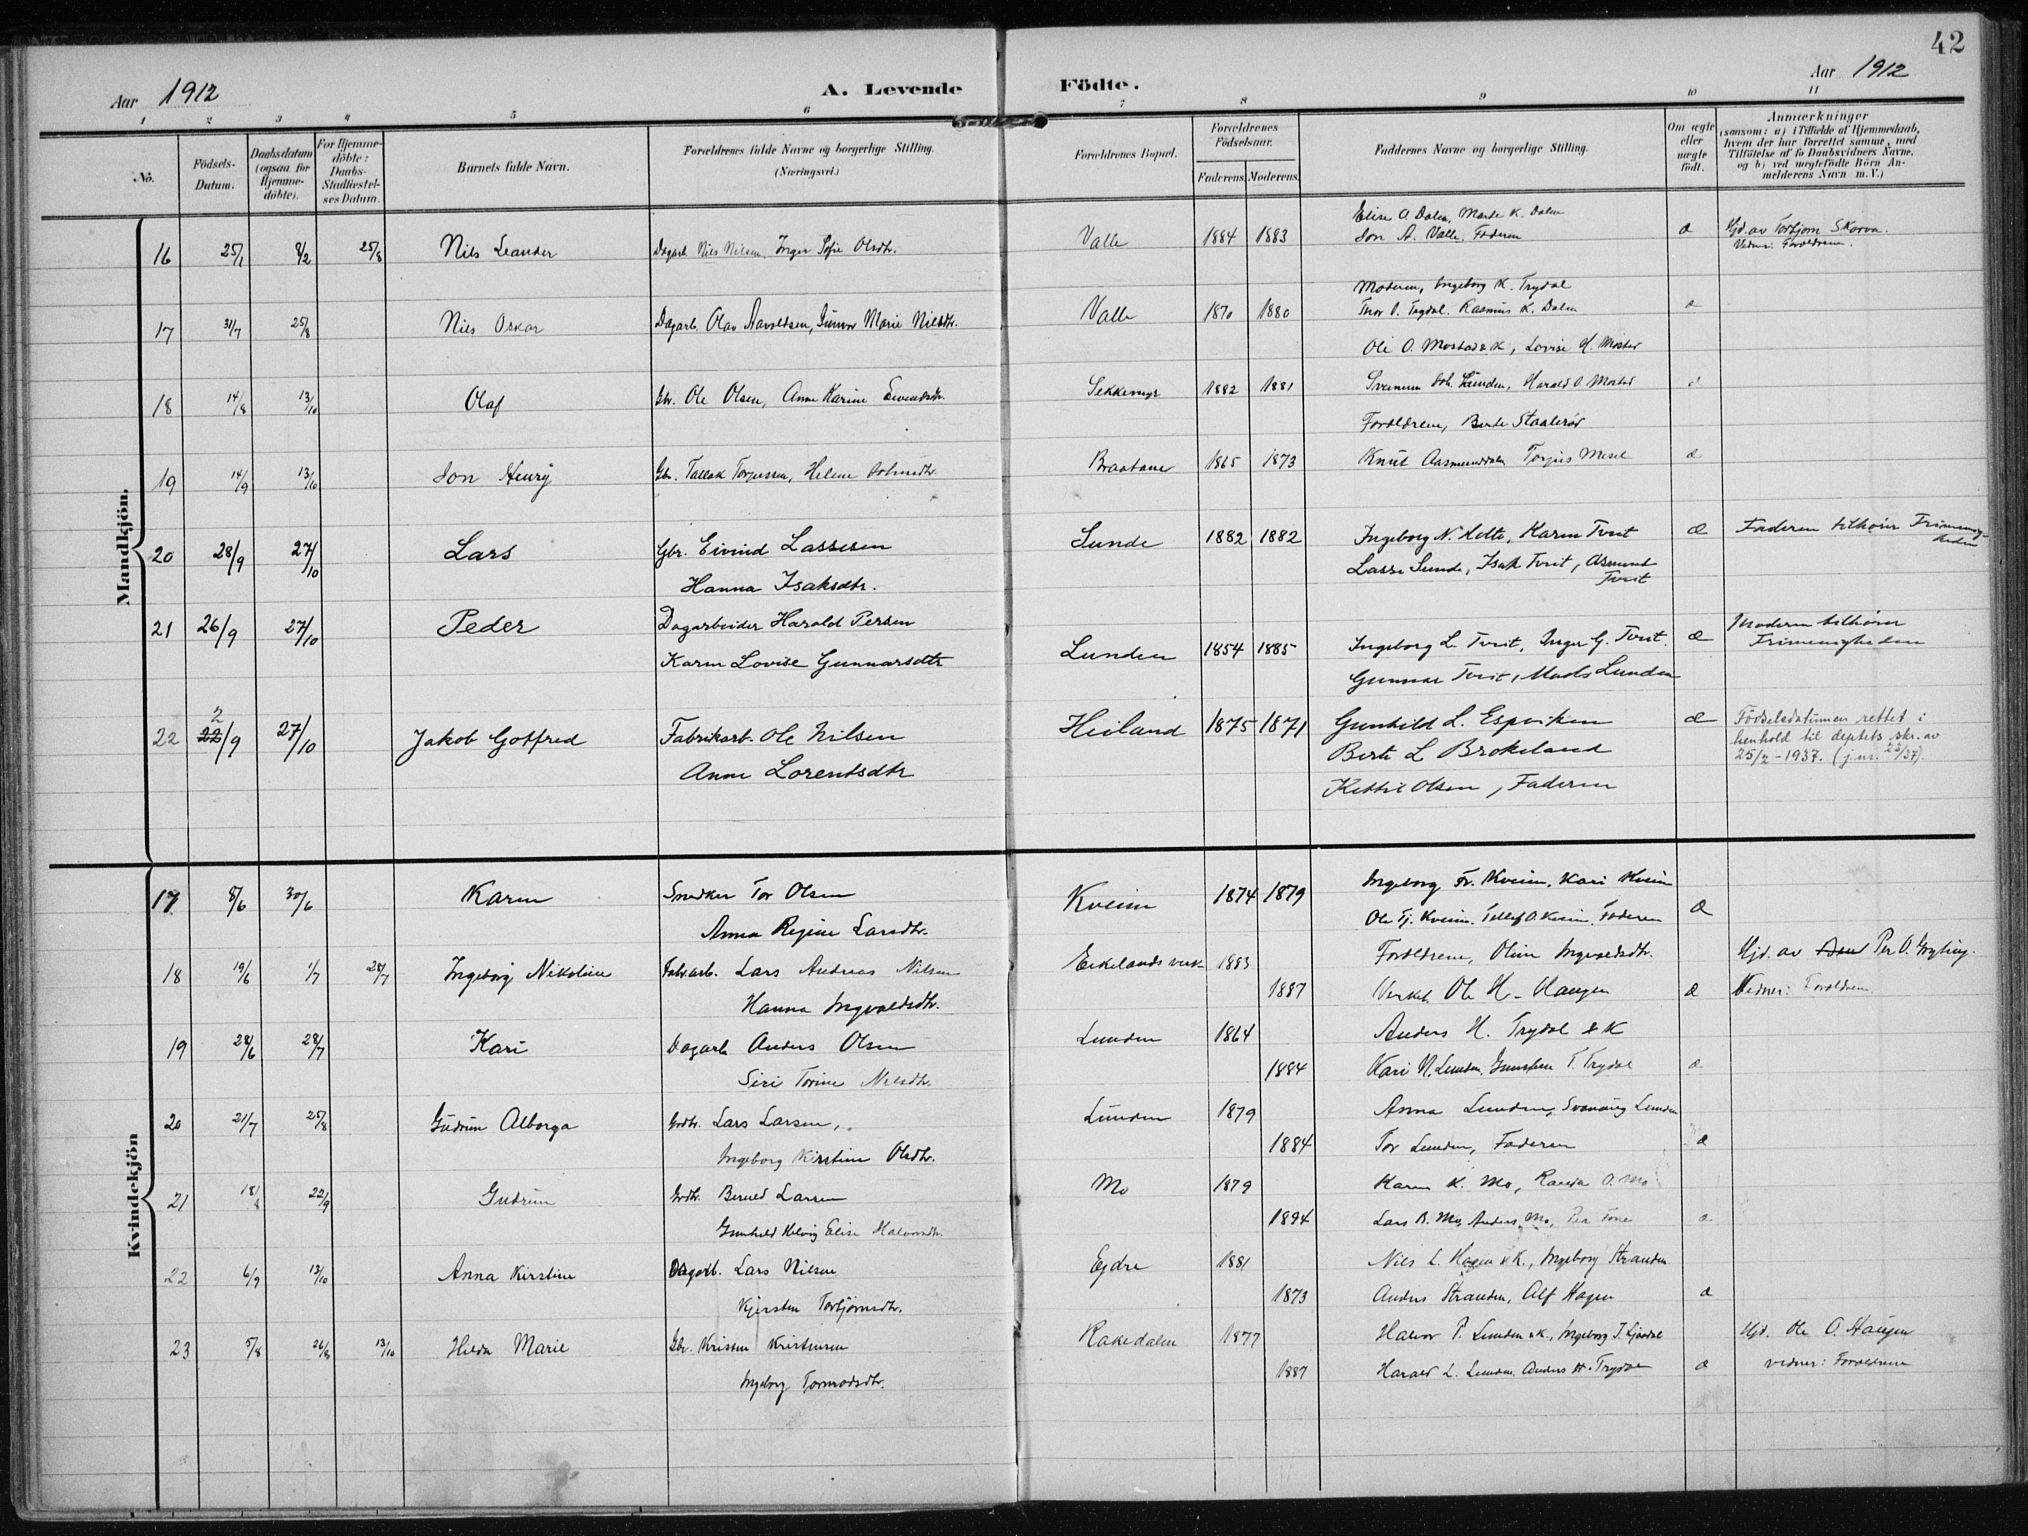 42
Aar 1912 A. Levende Födte. Aar 1912
1 2 3 4 5 6 7 8 9 10 11
No. Födsels-Datum. Daabsdatum (ogsaa for Hjemme-döbte). For Hjemme-döbte: Daabs-Stadfæstel-ses Datum. Barnets fulde Navn. Forældrenes fulde Navne og borgerlige Stilling. (Næringsvei.) Forældrenes Bopæl. Forældrenes Födselsaar. Faderens. Moderens. Faddernes Navne og borgerlige Stilling. Om ægte eller uægte födt. Anmærkninger (saasom: a) i Tilfælde af Hjemmedaab, hvem der har forrettet samme, med Tilföielse af to Daabsvidners Navne, og b) ved uægtefödte Börn An-melderens Navn m. V.)
Mandkjön.
Elise A Dalen, Marte K. Dalen
16 25/1 8/2 25/8 Nils Leander Dagarb. Nils Nilsen, Inger Sofie Olsdtr. Valle 1884 1883 Jon A. Valle. Faderen æ Hjd. av Torbjørn Skarva.
Vidner: Forældrene.
Moderen, Ingeborg K. Trydal
17 31/7 25/8 Nils Oskar Dagarb. Olav Aavoldsen, Gunvor Marie Nilsdtr. Valle 1870 1880 Thor O. Trydal. Rasmus K. Dalen æ
Ole O. Mostad & K, Lovise H. Mostad
18 14/8 13/10 Olaf Gbr. Ole Olsen, Anne Karine Eivindsdtr. 1882 1881 Lunden, Harald O. Mostad æ
Forældrene, Berte Staalerød
19 14/9 13/10 Jon Henry Gbr. Tallak Torjussen, Helene Braatane 1865 1873 Knut Aasmunddalen Torjus Mesel æ
20 28/9 27/10 Lars Gbr. Eivind Lassesen Sunde 1882 1882 Ingeborg N. Helte, Karen Tveit æ Faderen tilhører Frimenig-heden
Hanna Isaksdtr. Lasse Sunde, Isak Tveit, Asmund Tveit
21 26/9 27/10 Peder Dagarbeider Harald Persen Lunden 1854 1885 Ingeborg L. Tveit, Inger G. Tveit. æ Moderen tilhører
Karen Lovise Gunnarsdtr Gunnar Tveit, Mads Lunden Frimenigheden
2
22 22/9 27/10 Jakob Gotfred Fabrikarb. Ole Nilsen Heiland 1875 1871 Gunhild L. Espviken æ Fødselsdatumen rettet i
Anne Lorentsdtr Berte L Brokeland henhold til deptets skr. av
Kittil Olsen, Faderen 25/2 - 1937. (j.nr. 23/37).
Kvindekjön
17 8/6 30/6 Karen Snedker Tor Olsen Kveim 1874 1879 Ingeborg Fr. Kveim, Kari Kveim
Anna Regine Larsdtr. Ole Tj. Kveim. Tellef O. Kveim. Faderen æ
18 19/6 1/7 28/7 Ingeborg Nikoline Fabrarb. Lars Andreas Nilsen Eikelands verk 1883 Forældrene, Oline Ingvaldsdtr. Hjd. av Per O. Gryting.
Hanna Ingvaldsdtr. 1887 Verket, Ole H. Haugen æ Vidner: Forældrene
19 28/6 28/7 Kari Dagarb Anders Olsen Lunden 1864 Anders H. Trydal & K
Siri Torine Nilsdtr. 1884 Kari N. Lunden, T. Trydal æ
20 21/7 25/8 Gudrun Alborga Gbr. Lars Larsen, Lunden 1879 Anna Lunden, Svanaug Lunden
Ingeborg Kirstine Olsdtr. 1884 Tor Lunden, Faderen æ
21 18/8 22/9 Gudrun Gbr. Berned Larsen Mo 1879 Karen K. Mo, O. Mo
Gunhild Helvig Elise Halvorsdtr. 1894 Lars B. Mo, Anders Mo, Per æ
22 6/9 13/10 Anna Kirstine Dagarb. Lars Nilsen Egdre 1881 Nils L. Hagen & K., Ingeborg Stranden
Kjersten Torbjørnsdtr. 1873 Anders Stranden, Alf Hagen æ
23 5/8 26/8 13/10 Hilda Marie Gbr. Kristen Kristensen Rakedalen 1877 Halvor P. Lunden & K., Ingeborg T. Hjd. Ole O. Haugen
Ingeborg Tormodsdtr. 1887 Harald L. Lunden Anders H. Trydal æ vidner: Forældrene